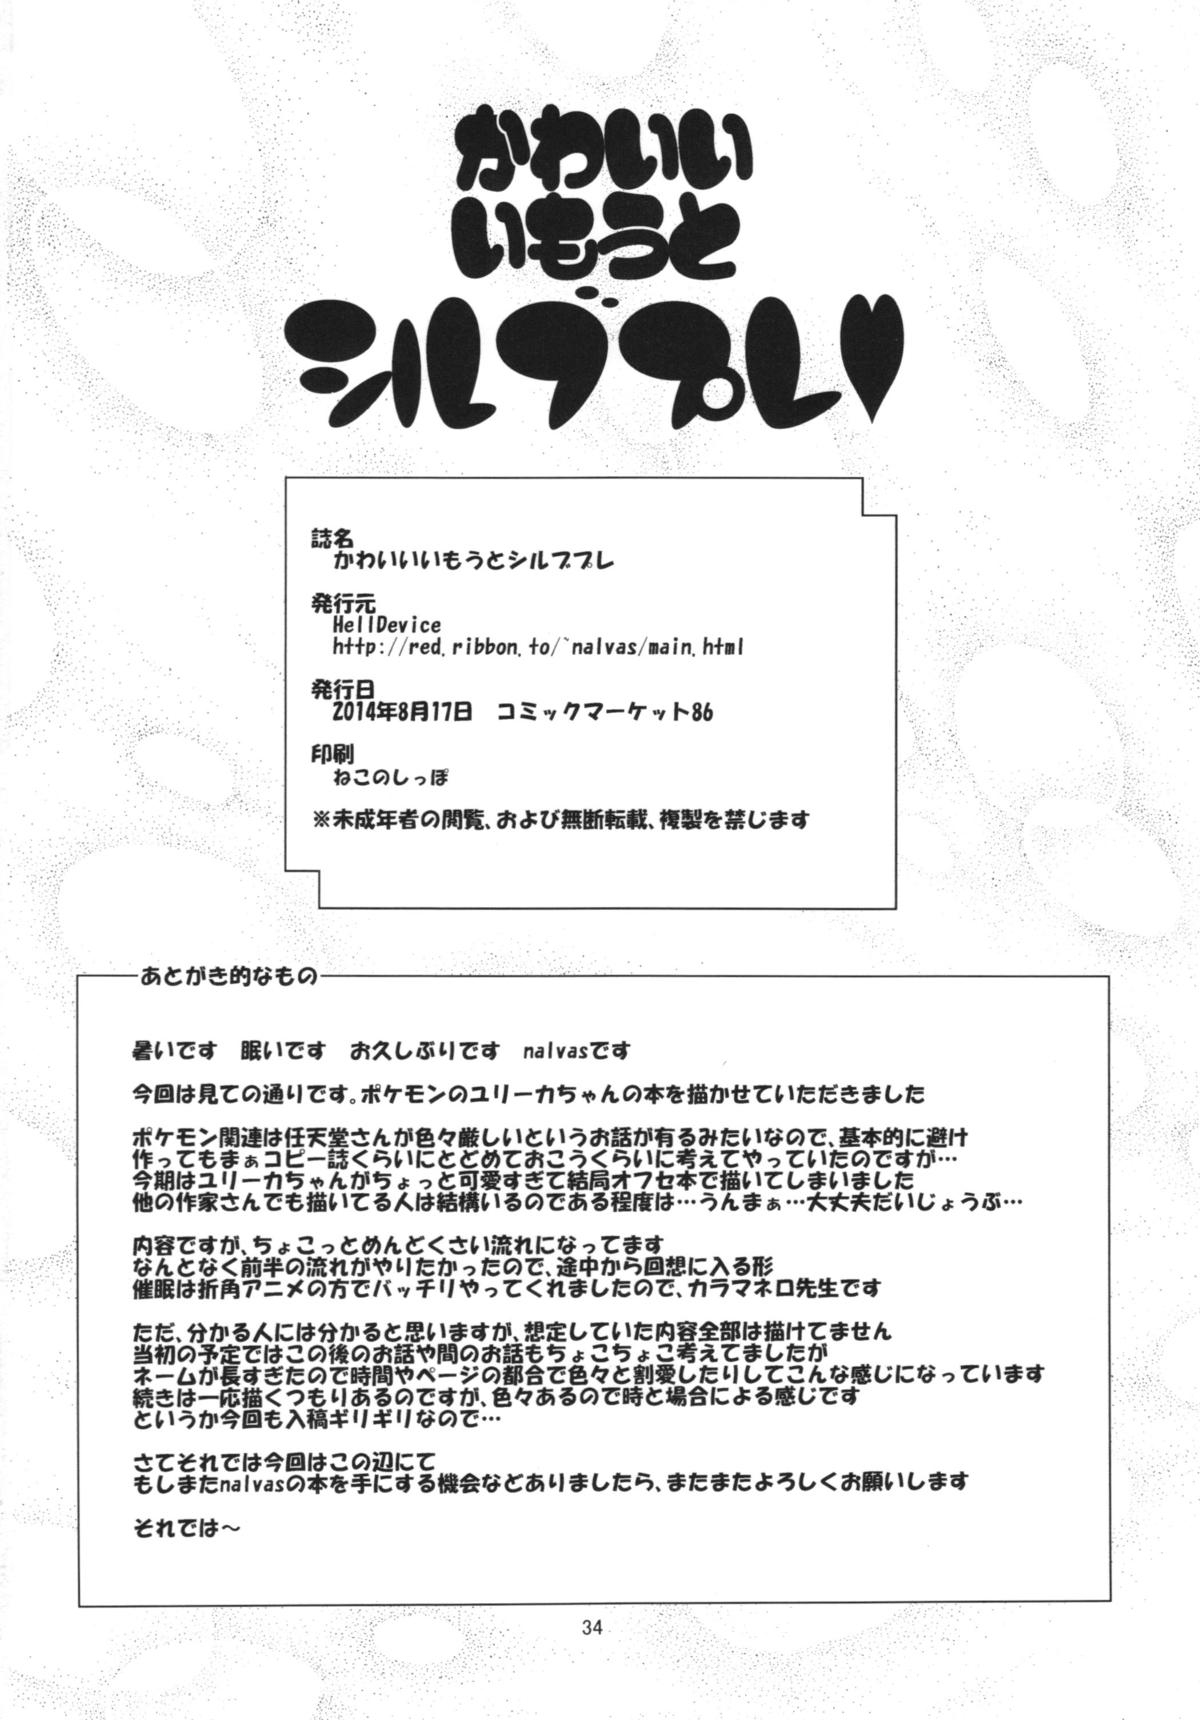 かわいい
いもうと
シルブプレ♥
誌名
かわいいいもうとシルブプレ
発行元
HellDevice
http://red.ribbon.to/~nalvas/main.html
発行日
2014年8月17日　コミックマーケット86
印刷
ねこのしっぽ
※未成年者の閲覧、および無断転載、複製を禁じます
あとがき的なもの
暑いです　眠いです　お久しぶりです　nalvasです
今回は見ての通りです。ポケモンのユリーカちゃんの本を描かせていただきました
ポケモン関連は任天堂さんが色々厳しいというお話が有るみたいなので、基本的に避け
作ってもまぁコピー誌くらいにとどめておこうくらいに考えてやっていたのですが…
今期はユリーカちゃんがちょっと可愛すぎて結局オフセ本で描いてしまいました
他の作家さんでも描いてる人は結構いるのである程度は…うんまぁ…大丈夫だいじょうぶ…
内容ですが、ちょこっとめんどくさい流れになってます
なんとなく前半の流れがやりたかったので、途中から回想に入る形
催眠は折角アニメの方でバッチリやってくれましたので、カラマネロ先生です
ただ、分かる人には分かると思いますが、想定していた内容全部は描けてません
当初の予定ではこの後のお話や間のお話もちょこちょこ考えてましたが
ネームが長すぎたので時間やページの都合で色々と割愛したりしてこんな感じになっています
続きは一応描くつもりあるのですが、色々あるので時と場合による感じです
というか今回も入稿ギリギリなので…
さてそれでは今回はこの辺にて
もしまたnalvasの本を手にする機会などありましたら、またまたよろしくお願いします
それでは～
34